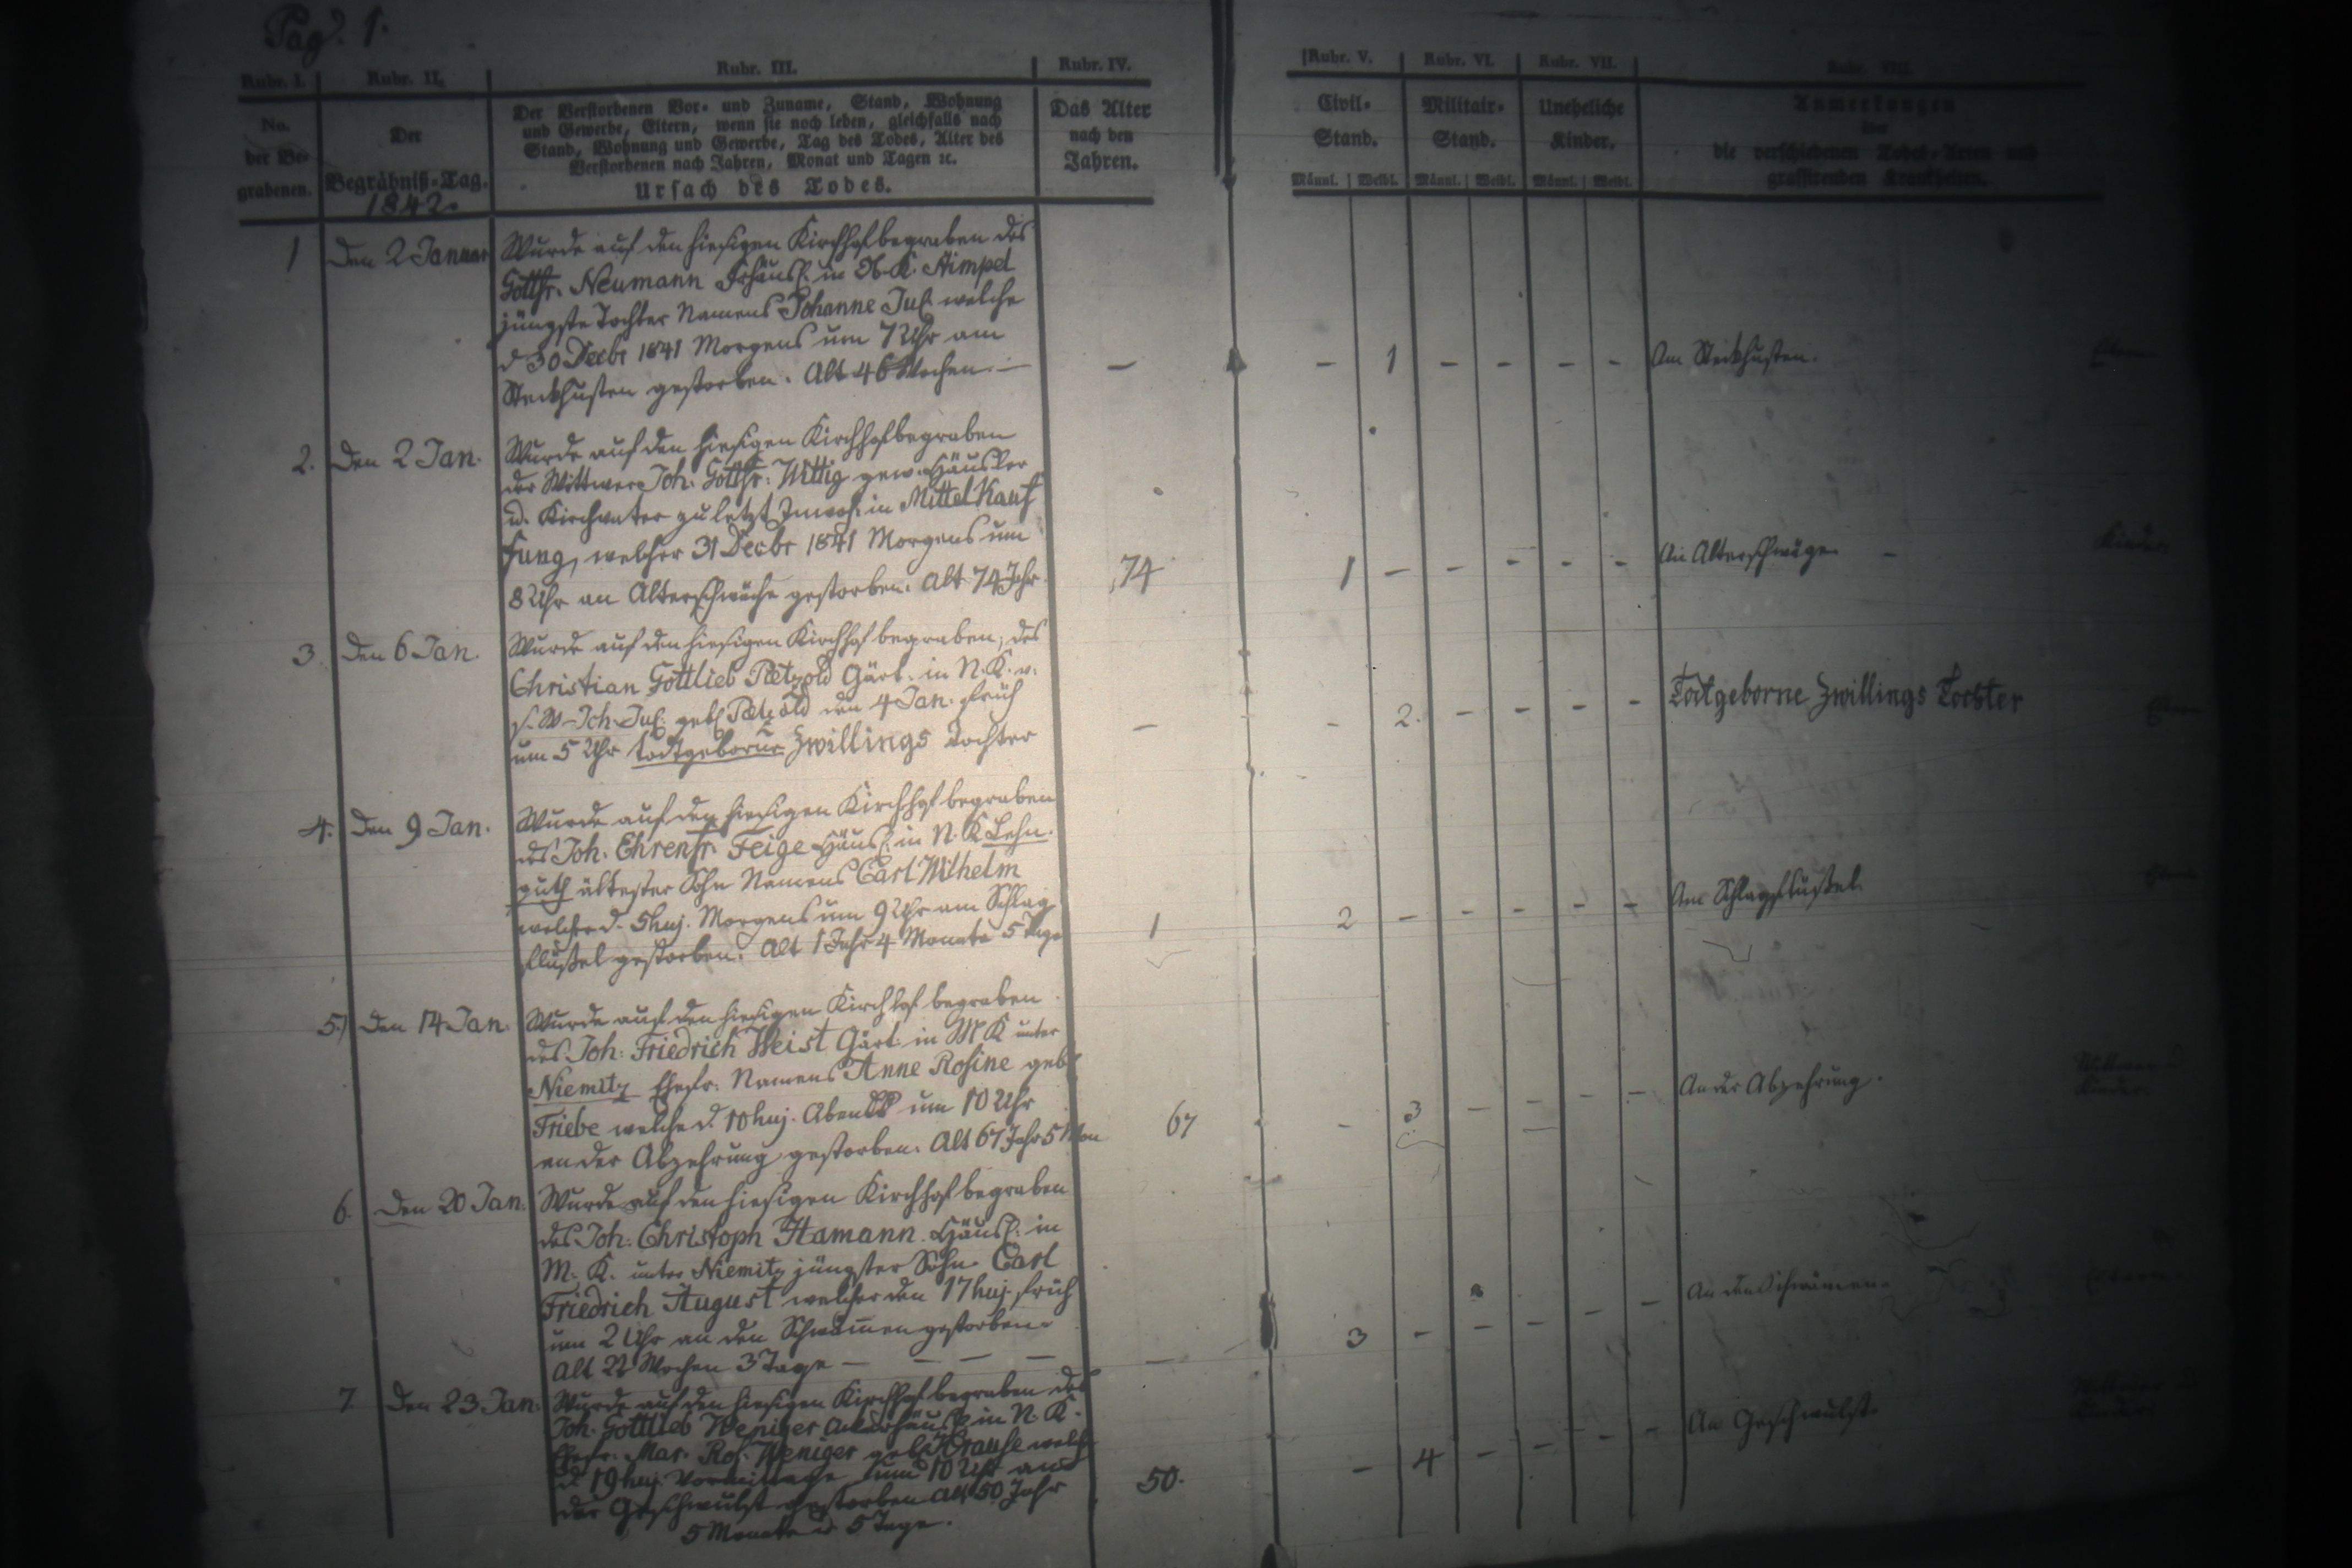 Pag. 1.
Rubr. I.
No.
der Be-
grabenen.
Rubr. II.
Der
Begräbniß-Tag.
1842.
Rubr. III.
Der Verstorbenen Vor- und Zuname, Stand, Wohnung
und Gewerbe, Eltern, wenn sie noch leben, gleichfalls nach
Stand, Wohnung und Gewerbe, Tag des Todes, Alter des
Verstorbenen nach Jahren, Monat und Tagen ꝛc.
Ursach des Todes.
Rubr. IV.
Das Alter
nach den
Jahren.
Rubr. V.
Civil-
Stand.
Männl. Weibl.
Rubr. VI.
Militair-
Stand.
Männl. Weibl.
Rubr. VII.
Uneheliche
Kinder.
Männl. Weibl.
Rubr. VIII.
Anmerkungen
über
die verschiedenen Todes-Arten und
grassirenden Krankheiten.
1 Den 2 Januar
Wurde auf den hiesigen Kirchhof begraben des
Gottfr. Neumann in K.
jüngste Tochter Namens Johanne Jul. welche
d 30 Decbr 1841 Morgens um 7 Uhr am
Steckhusten gestorben. Alt 46 Wochen. —
— — 1 — — — — Am Steckhusten.
2. Den 2 Jan.
Wurde auf den hiesigen Kirchhof begraben
der Wittwer Joh. Gottfr. Wittig gew. Häusler
u. Kirchvater zuletzt Inwoh. in Mittel Kauf
fung, welcher 31 Decbr 1841 Morgens um
8 Uhr an Altersschwäche gestorben. Alt 74 Jahr
74 1 — — — — — An Altersschwäche —
3. Den 6 Jan.
Wurde auf den hiesigen Kirchhof begraben, des
Christian Gottlieb Pätzold Gärt. in N. K. u.
s. W. Joh. Jul. geb. Pätzold den 4 Jan. früh
um 5 Uhr todtgeborne Zwillings Tochter
— — 2. — — — — Todtgeborne Zwillings Tochter
4. Den 9 Jan.
Wurde auf den hiesigen Kirchhof begraben
des Joh. Ehrenfr. Feige Häusl. in N. K Lehn-
guth ältester Sohn Namens Carl Wilhelm
welcher d. 5 huj. Morgens um 9 Uhr am Schlag
flußel gestorben. Alt 1 Jahr 4 Monate 5 Tage
1 2 — — — — — Am Schlagflußel.
5.) Den 14 Jan.
Wurde auf den hiesigen Kirchhof begraben
des Joh. Friedrich Weist Gärt. in M K unter
Niemitz Ehefr. Namens Anne Rosine geb.
Friebe welche d. 10 huj. Abends um 10 Uhr
an der Abzehrung gestorben. Alt 67 Jahr 5 Mon
67 — 3 — — — — An der Abzehrung.
6. Den 20 Jan.
Wurde auf den hiesigen Kirchhof begraben
des Joh. Christoph Hamann Häusl. in
M. K. unter Niemitz jüngster Sohn Carl
Friedrich August welcher den 17 huj. früh
um 2 Uhr an den Schwämen gestorben.
Alt 22 Wochen 3 Tage — — — —
— 3 — — — — — An den Schwämen.
7 Den 23 Jan.
Wurde auf den hiesigen Kirchhof begraben des
Joh. Gottlieb Weniger in N. K.
Ehefr. Mar. Ros. Weniger geb. Krause welche
d. 19 huj. Vormittags um 10 Uhr an
der Geschwulst gestorben Alt 50 Jahr
5 Monate u 5 Tage.
50. — 4 — — — — An Geschwulst.